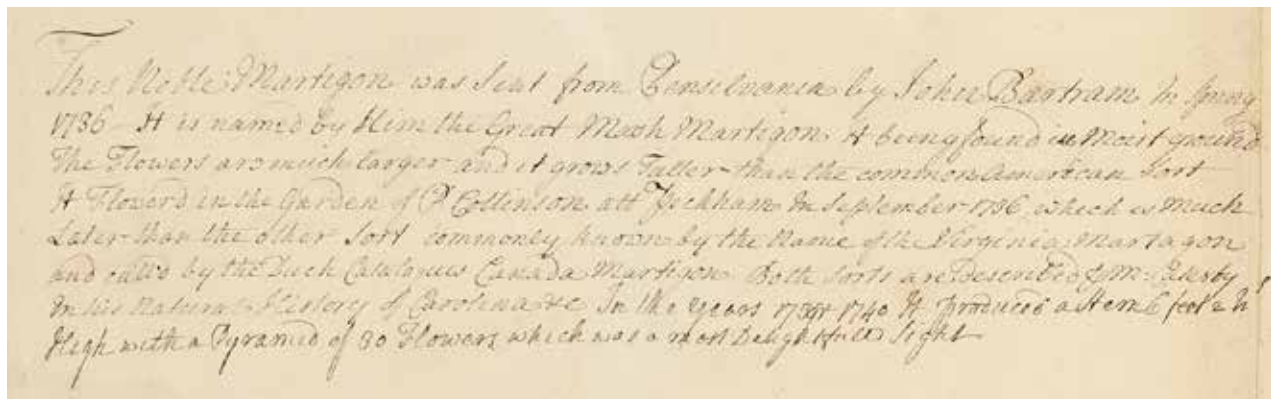 This Noble Martigon was Sent from Pensilvania by John Bartram In Spring
1736 It is named by Him the Great Mash Martigon It being found in Moist ground
The Flowers are much Larger and it grows Taller than the common American Sort
It Flowerd in the Garden of P Collinson att Peckham In September 1736 which is Much
Later than the other Sort commonly known by the Name of the Virginia Martagon
and calld by the Duch Catalogues Canada Martigon Both Sorts are described by Mr Catesby
In his Natural History of Carolina &c In the years 1740 It produced a Stem 6 feet
High with a Pyramid of 30 Flowers which was a most Delightfull Sight